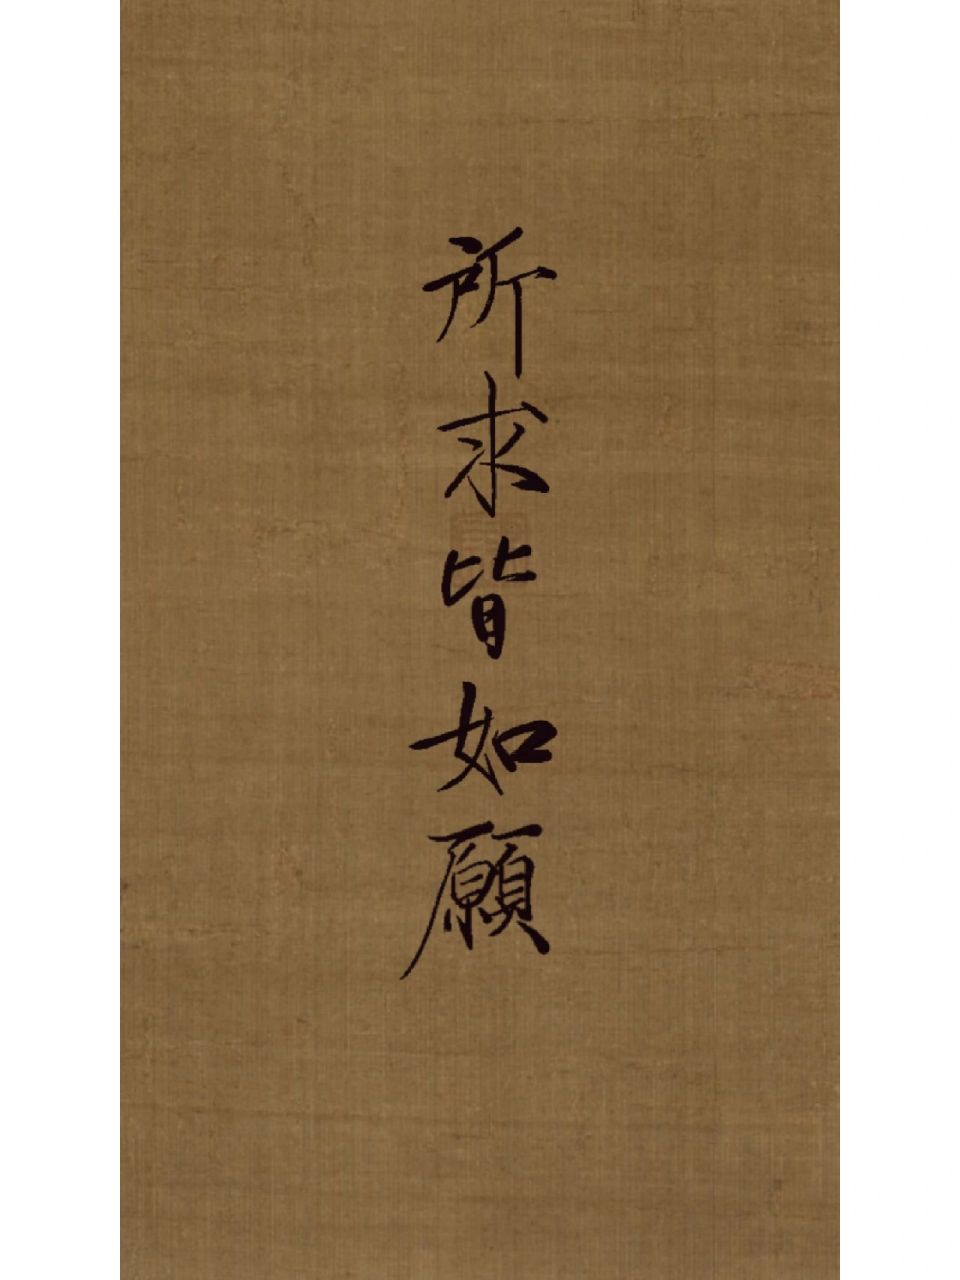 所求皆如願